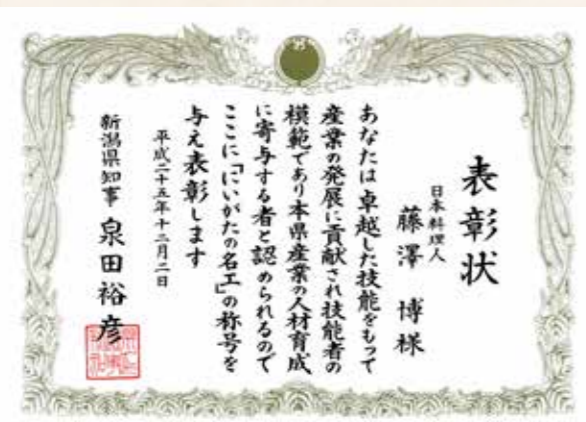 表彰状
日本料理人
藤澤 博様
あなたは卓越した技能をもって
産業の発展に貢献され技能者の
模範であり本県産業の人材育成
に寄与する者と認められるので
ここに「にいがたの名工」の称号を
与え表彰します
平成二十五年十二月二日
新潟県知事 泉田裕彦